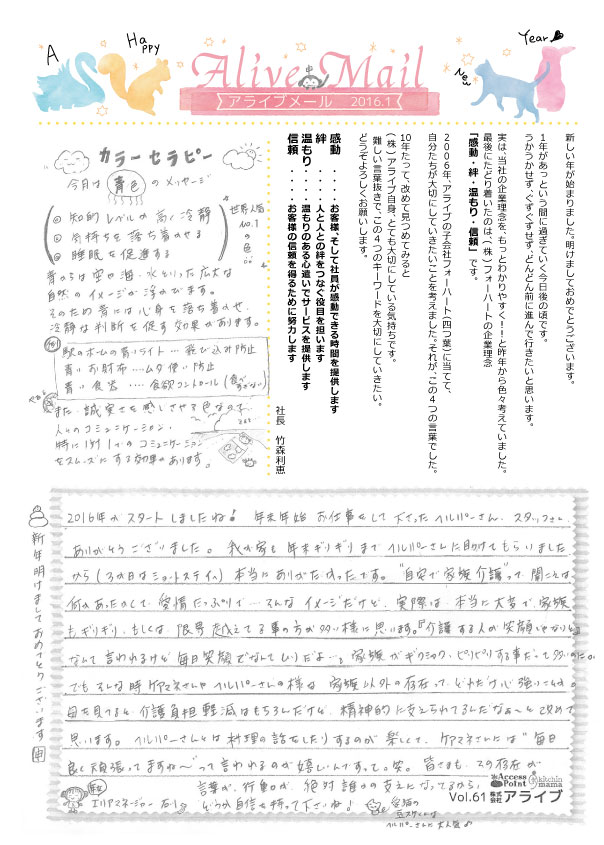 A Happy New Year
Alive Mail
アライブメール 2016.1
新しい年が始まりました。明けましておめでとうございます。
1年があっという間に過ぎていく今日後の頃です。
うかうかせず、ぐずぐずせず、どんどん前に進んで行きたいと思います。
実は、当社の企業理念を、もっとわかりやすく!!と昨年から色々考えていました。
最後にたどり着いたのは、(株)フォーハートの企業理念
『感動・絆・温もり・信頼』です。
2006年、アライブの子会社フォーハート(四つ葉)に当てて、
自分たちが大切にしていきたいことを考えました。それが、この4つの言葉でした。
10年たって、改めて見つめてみると
(株)アライブ自身、とても大切にしている気持ちです。
難しい言葉抜きで、この4つのキーワードを大切にしていきたい。
どうぞよろしくお願いします。
感動・・・・お客様、そして社員が感動できる時間を提供します
絆・・・・・人と人との絆をつなぐ役目を担います
温もり・・・温もりのある心遣いでサービスを提供します
信頼・・・・お客様の信頼を得るために努力します
社長 竹森利恵
カラーセラピー
今月は 青色 のメッセージ
世界人気NO.1の色
◎ 知的レベルが高く冷静
◎ 気持ちを落ち着かせる
◎ 睡眠を促進する
青からは空や海、水といった広大な
自然のイメージが浮かびます。
そのため青には心身を落ち着かせ、
冷静な判断を促す効果があります。
例
駅のホームの青いライト…飛び込み防止
青いお財布…ムダ使い防止
青い食器…食欲コントロール
また、誠実さを感じさせる色なので、
人とのコミュニケーション、
特に1対1のコミュニケーション
をスムーズにする効果があります。
新年明けましておめでとうございます 申
2016年がスタートしましたね! 年末年始 お仕事をして下さったヘルパーさん、スタッフさん
ありがとうございました。我が家も年末ギリギリまでヘルパーさんに助けてもらいました
から(3が日はショートステイ)本当にありがたかったです。"自宅で家族介護"って聞こえは
何かあったかくて、愛情たっぷりで…そんなイメージだけど、実際は、本当に大変で、家族
もギリギリ、もしくは、限界越えてる事の方が多い様に思います。『介護する人が笑顔じゃなきゃ』
なんて言われるけど毎日笑顔でなんて
家族がギクシャク、ピリピリする事だって多いのに。
でもそんな時ケアマネさんやヘルパーさんの様な 家族以外の存在って、どれだけ心強いことか。
母を見てると介護負担軽減はもちろんだけど、精神的に支えられてるんだなぁ〜と改めて
思います。ヘルパーさんとは料理の話をしたりするのが楽しくて、ケアマネさんには"毎日
良く頑張ってますね〜"って言われるのが嬉しいんですって。笑。皆さまも、その存在が
言葉が、行動が、絶対誰かの支えになってるから、
どうぞ自信を持って下さいね!
エリアマネージャー
Access Point
kitchin mama
Vol.61 株式会社 アライブ
ヘルパーさんに大人気♪